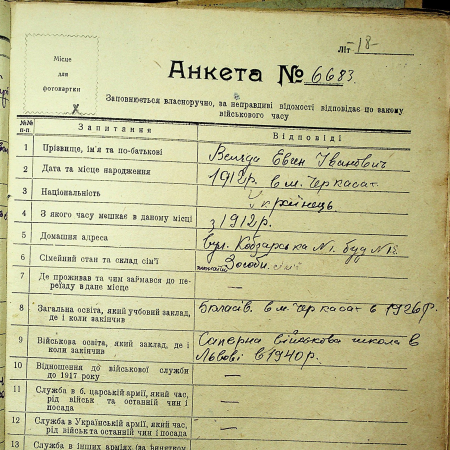 Літ. -18-
Місце
для
фотокартки
Анкета № 6683.
Заповнюється власноручно, за неправдиві відомості відповідає по закону
військового часу
№№ п-п
Запитання
Відповіді
1 Прізвище, ім'я та по-батькові
Іванович
2 Дата та місце народження
1912р. в м. Черкасах
3 Національність
Українець
4 З якого часу мешкає в даному місці
з 1912 р.
5 Домашня адреса
вул. Кобзарська №1. буд №
6 Сімейний стан та склад сім'ї
3 особи.
7 Де проживав та чим займався до пе-
реїзду в дане місце
—
8 Загальна освіта, який учбовий заклад,
де і коли закінчив
в м. Черкасах в 1926 р.
9 Військова освіта, який заклад, де і
коли закінчив
Саперна військова школа в
Львові в 1940 р.
10 Відношення до військової служби
до 1917 року
—
11 Служба в б. царській армії, який час,
рід військ та останній чин і
посада
—
12 Служба в Українській армії, який час,
рід військ та останній чин і посада
—
13 Служба в інших арміях (за винятком